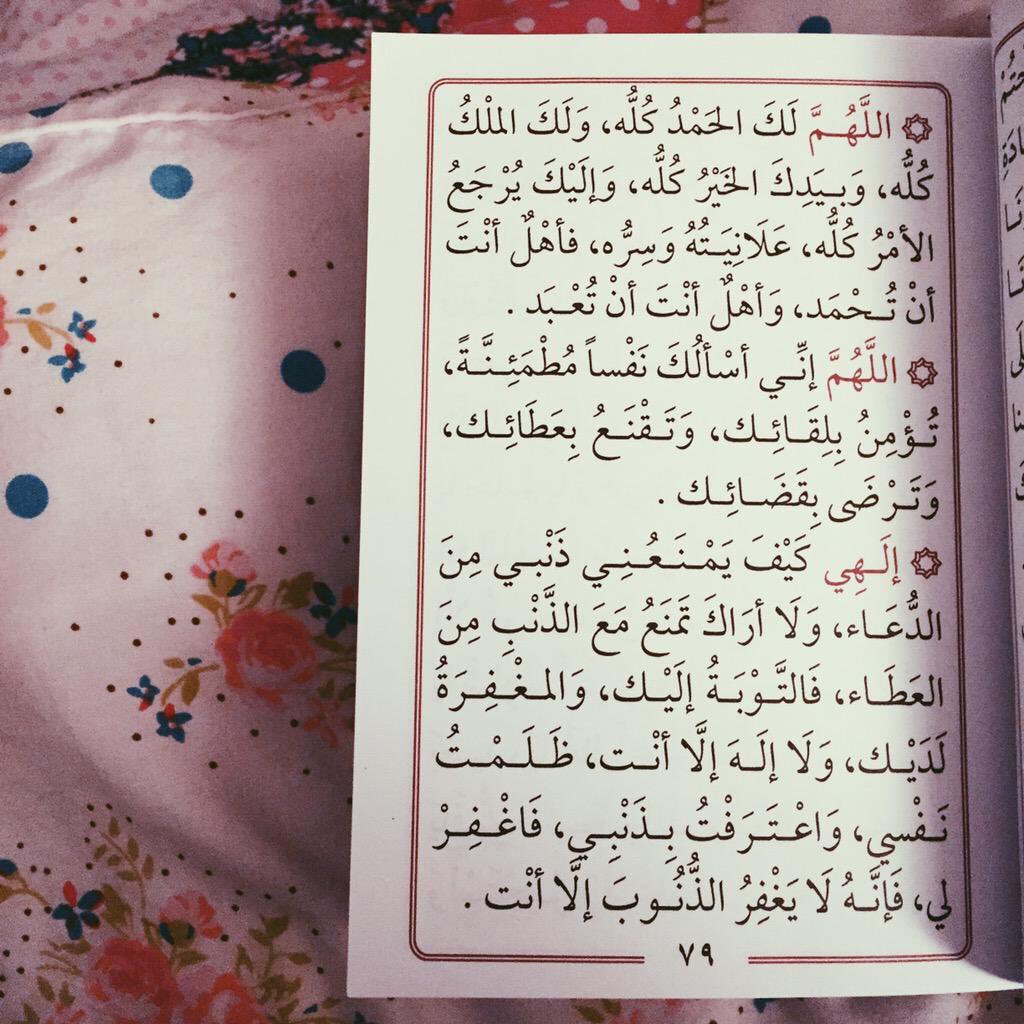 ۞ اللَّهُمَّ لَكَ الحَمْدُ كُلُّه، وَلَكَ الملْكُ
كُلُّه، وَبِيَدِكَ الخَيْرُ كُلُّه، وَإلَيْكَ يُرْجَعُ
الأمْرُ كُلُّه، عَلَانِيَتُهُ وَسِرُّه، فأهْلٌ أنْتَ
أنْ تُحْمَد، وَأهْلٌ أنْتَ أنْ تُعْبَد .
۞ اللَّهُمَّ إنِّي أسْألُكَ نَفْساً مُطْمَئِنَّةً،
تُؤْمِنُ بِلِقَائِك، وَتَقْنَعُ بِعَطَائِك،
وَتَرْضَى بِقَضَائِك .
۞ إلَهِي كَيْفَ يَمْنَعُنِي ذَنْبي مِنَ
الدُّعَاء، وَلَا أرَاكَ تَمَنَعُ مَعَ الذَّنْبِ مِنَ
العَطَاء، فَالتَّوْبَةُ إلَيْك، وَالمغْفِرَةُ
لَدَيْك، وَلَا إلَهَ إلَّا أنْت، ظَلَمْتُ
نَفْسي، وَاعْتَرَفْتُ بِذَنْبِي، فَاغْفِرْ
لي، فَإنَّهُ لَا يَغْفِرُ الذُّنُوبَ إلَّا أنْت .
٧٩